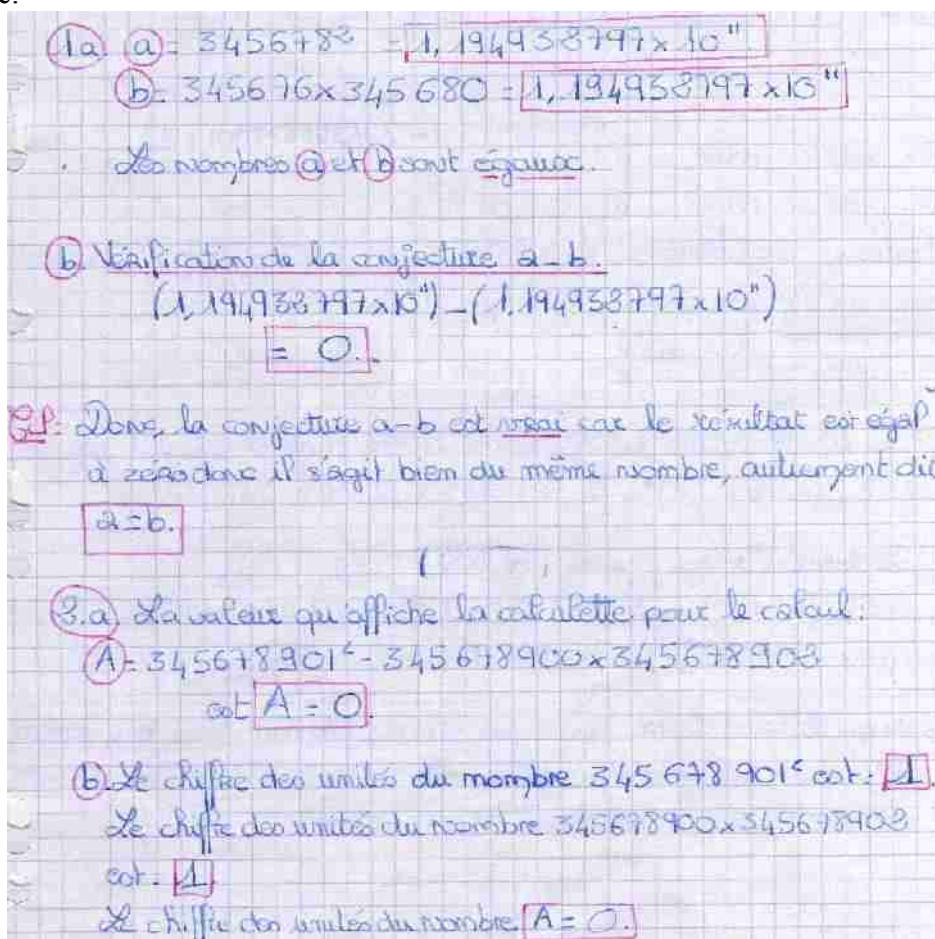 1a. a = 345678² = 1,194938797 × 10¹¹
b = 345676 × 345680 = 1,194938797 × 10¹¹
Les nombres a et b sont égaux.
b. Vérification de la conjecture a-b.
(1,194938797 × 10¹¹) - (1,194938797 × 10¹¹)
= 0.
Donc, la conjecture a-b est vrai car le résultat est égal
à zéro donc il s'agit bien du même nombre, autrement dit
a=b.
3.a) La valeur qu'affiche la calculette pour le calcul:
A = 345678901² - 345678900 × 345678902
est A = 0.
b. Le chiffre des unités du nombre 345 678 901² est : 1.
Le chiffre des unités du nombre 345678900 × 345678902
est : 1
Le chiffre des unités du nombre A = 0.